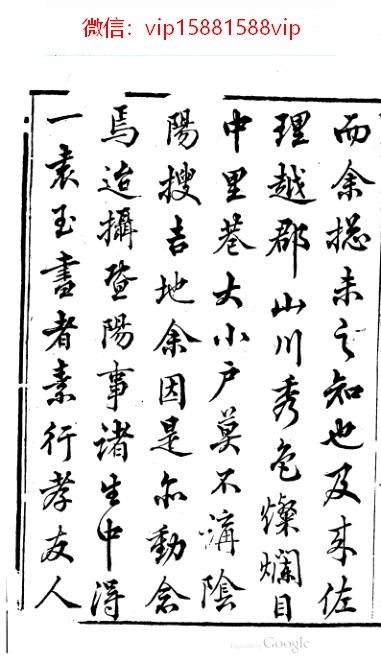 微信：vip15881588vip
而余揔未之知也及来佐
理越郡山川秀色燦爛目
中里巷大小户莫不講陰
陽搜吉地余因是亦動念
焉迨攝暨陽事諸生中得
一袁玉書者素行孝友人
Digitized by Google